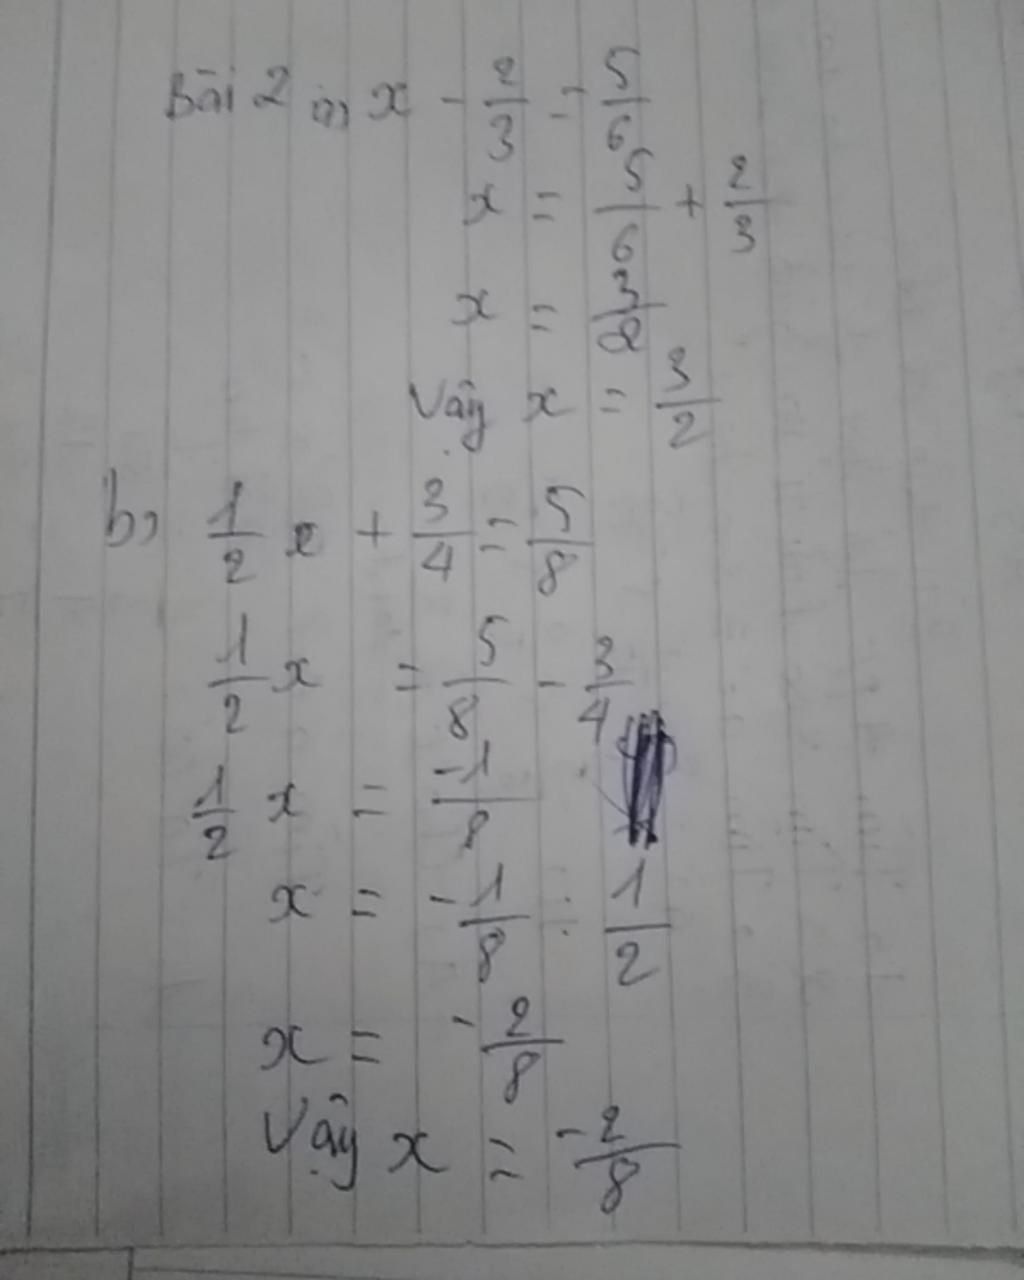 Bài 2 a) x - 2/3 = 5/6
x = 5/6 + 2/3
x = 3/2
Vậy x = 3/2
b) 1/2 x + 3/4 = 5/8
1/2 x = 5/8 - 3/4
1/2 x = -1/8
x = -1/8 : 1/2
x = -2/8
Vậy x = -2/8